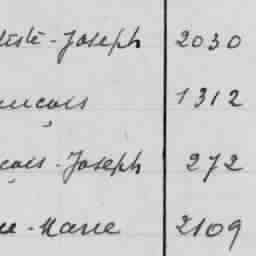 tiste-Joseph 2030
ançois 1312
çois-Joseph 272
ie-Marie 2109